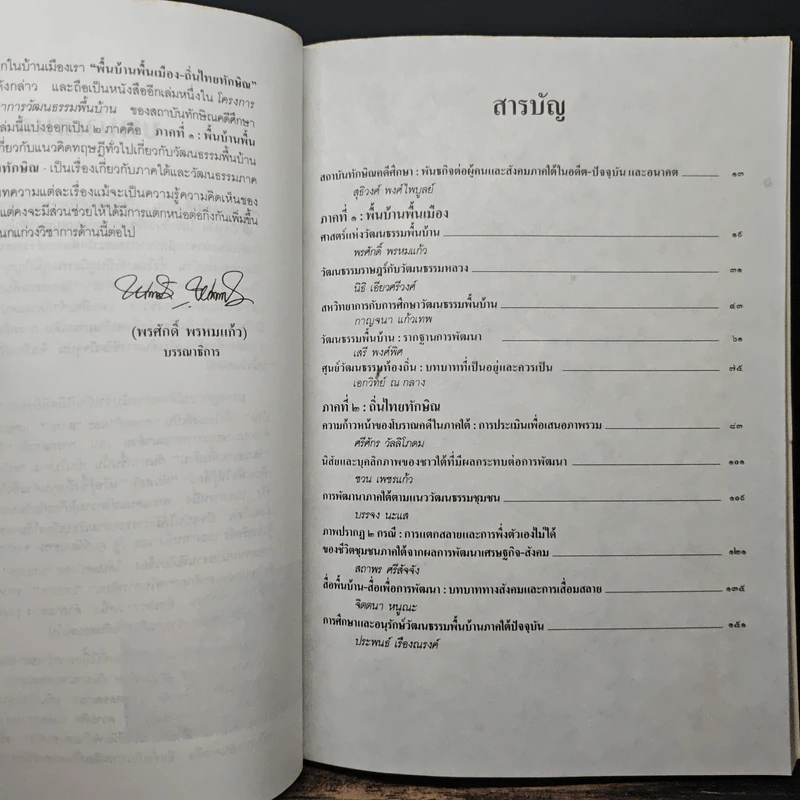 กในบ้านเมืองเรา "พื้นบ้านพื้นเมือง-ถิ่นไทยทักษิณ"
ดังกล่าว และถือเป็นหนังสืออีกเล่มหนึ่งใน โครงการ
าการวัฒนธรรมพื้นบ้าน ของสถาบันทักษิณคดีศึกษา
ล่มนี้แบ่งออกเป็น ๒ ภาคคือ ภาคที่ ๑ : พื้นบ้านพื้น
กี่ยวกับแนวคิดทฤษฎีทั่วไปเกี่ยวกับวัฒนธรรมพื้นบ้าน
ทักษิณ - เป็นเรื่องเกี่ยวกับภาคใต้และวัฒนธรรมภาค
ทความแต่ละเรื่องแม้จะเป็นความรู้ความคิดเห็นของ
แต่คงจะมีส่วนช่วยให้ได้มีการแตกหน่อต่อกิ่งกันเพิ่มขึ้น
นกแก่วงวิชาการด้านนี้ต่อไป
(พรศักดิ์ พรหมแก้ว)
บรรณาธิการ
สารบัญ
สถาบันทักษิณคดีศึกษา : พันธกิจต่อผู้คนและสังคมภาคใต้ในอดีต-ปัจจุบัน และอนาคต ๑๓
สุธิวงศ์ พงศ์ไพบูลย์
ภาคที่ ๑ : พื้นบ้านพื้นเมือง
ศาสตร์แห่งวัฒนธรรมพื้นบ้าน ๑๙
พรศักดิ์ พรหมแก้ว
วัฒนธรรมราษฎร์กับวัฒนธรรมหลวง ๓๑
นิธิ เอียวศรีวงศ์
สหวิทยาการกับการศึกษาวัฒนธรรมพื้นบ้าน ๔๓
กาญจนา แก้วเทพ
วัฒนธรรมพื้นบ้าน : รากฐานการพัฒนา ๖๑
เสรี พงศ์พิศ
ศูนย์วัฒนธรรมท้องถิ่น : บทบาทที่เป็นอยู่และควรเป็น ๗๕
เอกวิทย์ ณ ถลาง
ภาคที่ ๒ : ถิ่นไทยทักษิณ
ความก้าวหน้าของโบราณคดีในภาคใต้ : การประเมินเพื่อเสนอภาพรวม ๘๓
ศรีศักร วัลลิโภดม
นิสัยและบุคลิกภาพของชาวใต้ที่มีผลกระทบต่อการพัฒนา ๑๐๑
ชวน เพชรแก้ว
การพัฒนาภาคใต้ตามแนววัฒนธรรมชุมชน ๑๐๙
บรรจง นะแส
ภาพปรากฏ ๒ กรณี : การแตกสลายและการพึ่งตัวเองไม่ได้
ของชีวิตชุมชนภาคใต้จากผลการพัฒนาเศรษฐกิจ-สังคม ๑๒๑
สถาพร ศรีสัจจัง
สื่อพื้นบ้าน-สื่อเพื่อการพัฒนา : บทบาททางสังคมและการเสื่อมสลาย ๑๓๕
จิตตนา หนูณะ
การศึกษาและอนุรักษ์วัฒนธรรมพื้นบ้านภาคใต้ปัจจุบัน ๑๕๑
ประพนธ์ เรืองณรงค์